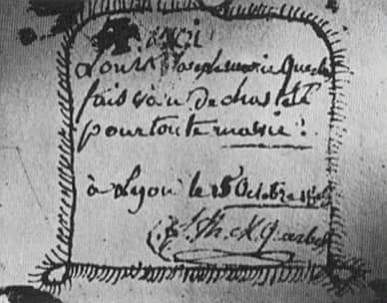 moi
Louis Joseph marie Querbe
fais vœu de chasteté
pour toute ma vie.
à Lyon le 15 Octobre
L. Jh. M. Querbes